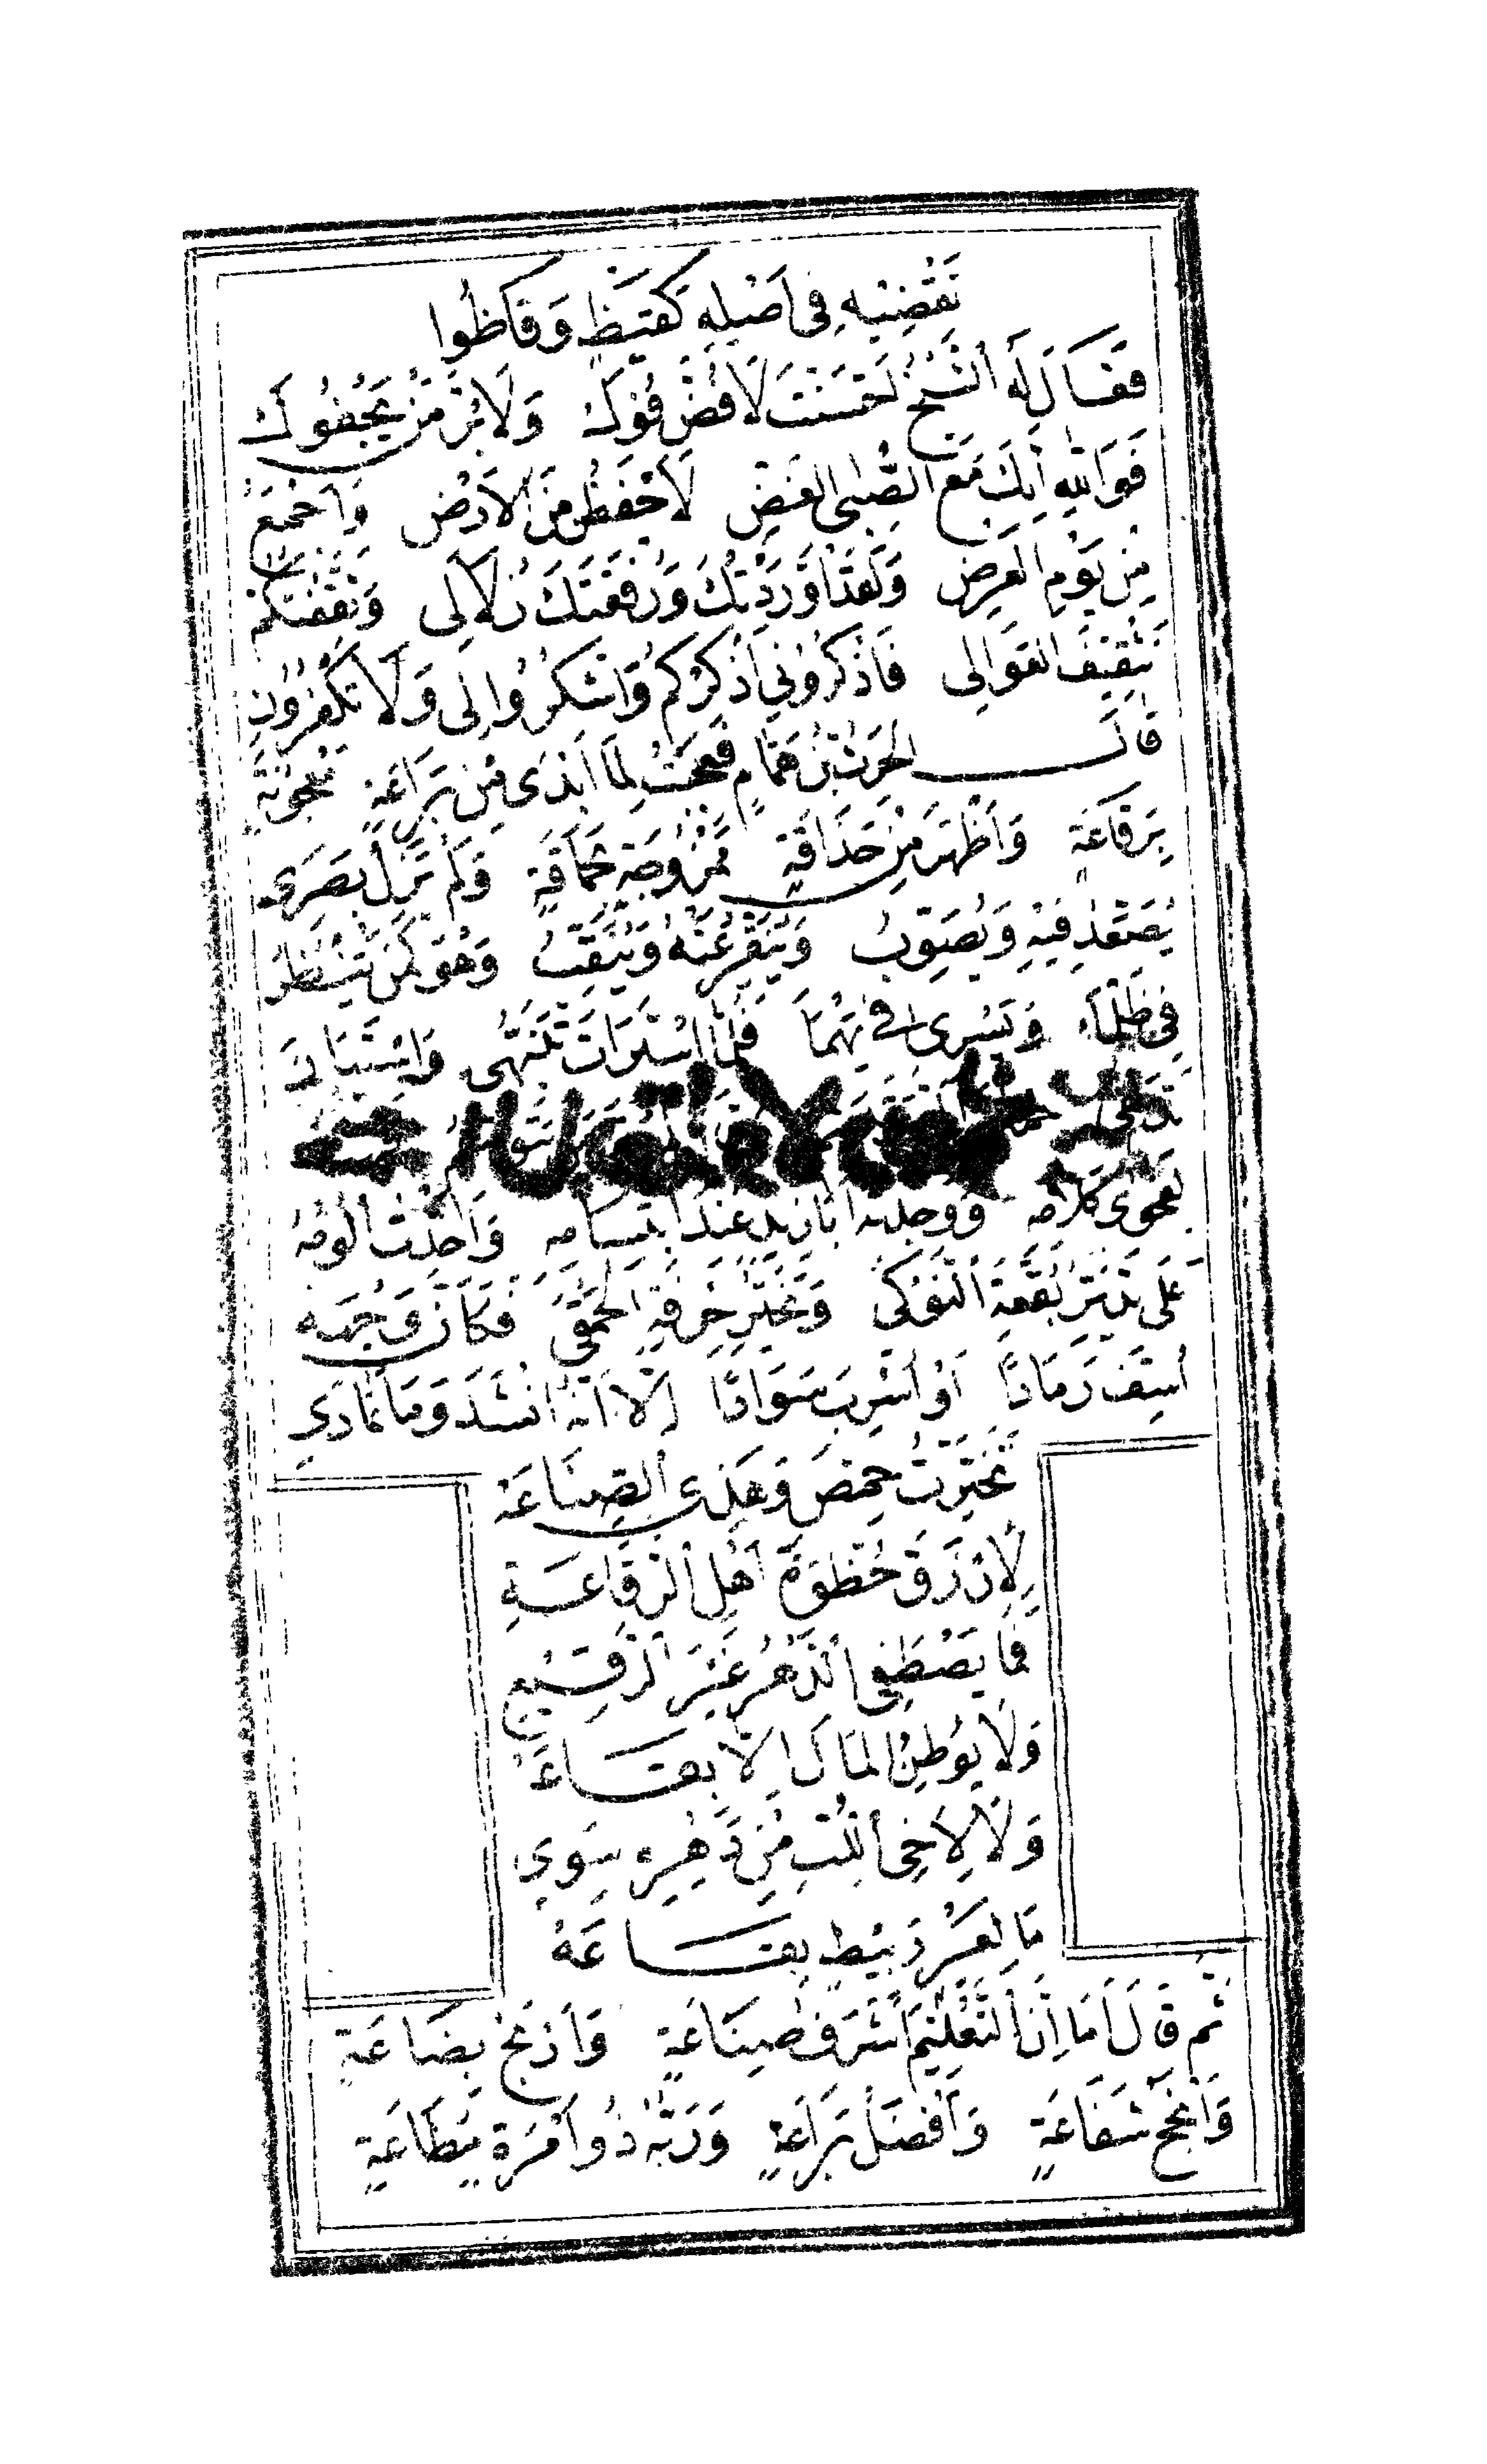 تَقْضِيْهِ فِى اَصْلِهِ كَقَيْظٍ وَقَاظُوا
فَقَالَ لَهُ الشَّيْخُ اَحْسَنْتَ لَا فُضَّ فُوْكَ وَلَا بُرَّ مَنْ يَجْفُوكَ
فَوَاللهِ اِنَّكَ مَعَ الصِّبَى الغَضِّ لَاَحْفَظُ مِنَ الاَرْضِ وَاَجْمَعُ
مِنْ يَوْمِ العَرْضِ وَلَقَدْ اَوْرَدْتُكَ وَرُفْقَتَكَ زُلَالِى وَثَقَّفْتُكُمْ
تَثْقِيْفَ العَوَالِى فَاذْكُرُوْنِي اَذْكُرْكُمْ وَاشْكُرُوْا لِى وَلَا تَكْفُرُوْنِ
قَالَ الحَرِثُ بْنُ هَمَّامٍ فَعَجِبْتُ لِمَا اَبْدَى مِنْ بَرَاعَةٍ مَعْجُوْنَةٍ
بِرَقَاعَةٍ وَاَظْهَرَ مِنْ حَذَاقَةٍ مَمْزُوْجَةٍ بِحَمَاقَةٍ وَلَمْ يَزَلْ بَصَرِي
يُصَعِّدُ فِيْهِ وَيُصَوِّبُ وَيُنَقِّرُ عَنْهُ وَيُنَقِّبُ وَهُوَ كَمَنْ يَنْظُرُ
فِى ظَلْمَاءَ وَيَسْرِى فِى بَهْمَاءَ فَلَمَّا اسْتَرَاثَ تَنَبُّهِى وَاسْتَبَانَ
تَدَلُّهِى
لِفَحْوَى كَلَامِهِ وَوَجَدْتُهُ اَبَا زَيْدٍ عِنْدَ ابْتِسَامِهِ وَاَخَذْتُ اَلُوْمُهُ
عَلَى تَدَيُّرِ بُقْعَةِ النَّوْكَى وَتَخَيُّرِ حِرْفَةِ الحَمْقَى فَكَاَنَّ وَجْهَهُ
اُسِفَّ رَمَادًا اَوْ اُشْرِبَ سَوَادًا اِلَّا اَنَّهُ اَنْشَدَ وَمَا تَمَادَى
تَخَيَّرْتُ حِمْصَ وَهَذِى الصِّنَاعَهْ
لِاُرْزَقَ حُظْوَةَ اَهْلِ الرَّقَاعَةِ
فَمَا يَصْطَفِى الدَّهْرُ غَيْرَ الرَّقِيْعِ
وَلَا يُوْطِنُ المَالَ اِلَّا بِقَاعَهْ
وَلَا لِاَخِى اللُّبِّ مِنْ دَهْرِهِ سِوَى
مَا لِعَيْرٍ رَبِيْطٍ بِقَاعَهْ
ثُمَّ قَالَ اَمَا اِنَّ التَّعْلِيْمَ اَشْرَفُ صِنَاعَةٍ وَاَرْبَحُ بِضَاعَةٍ
وَاَنْجَحُ شَفَاعَةٍ وَاَفْضَلُ بَرَاعَةٍ وَرَبُّهُ ذُو اَمْرَةٍ مُطَاعَةٍ